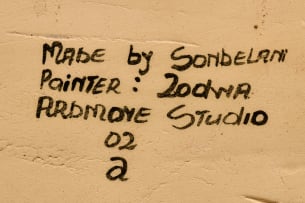 MADE by SONDELANI
PAINTER : ZODWA
ARDMORE STUDIO
02
a